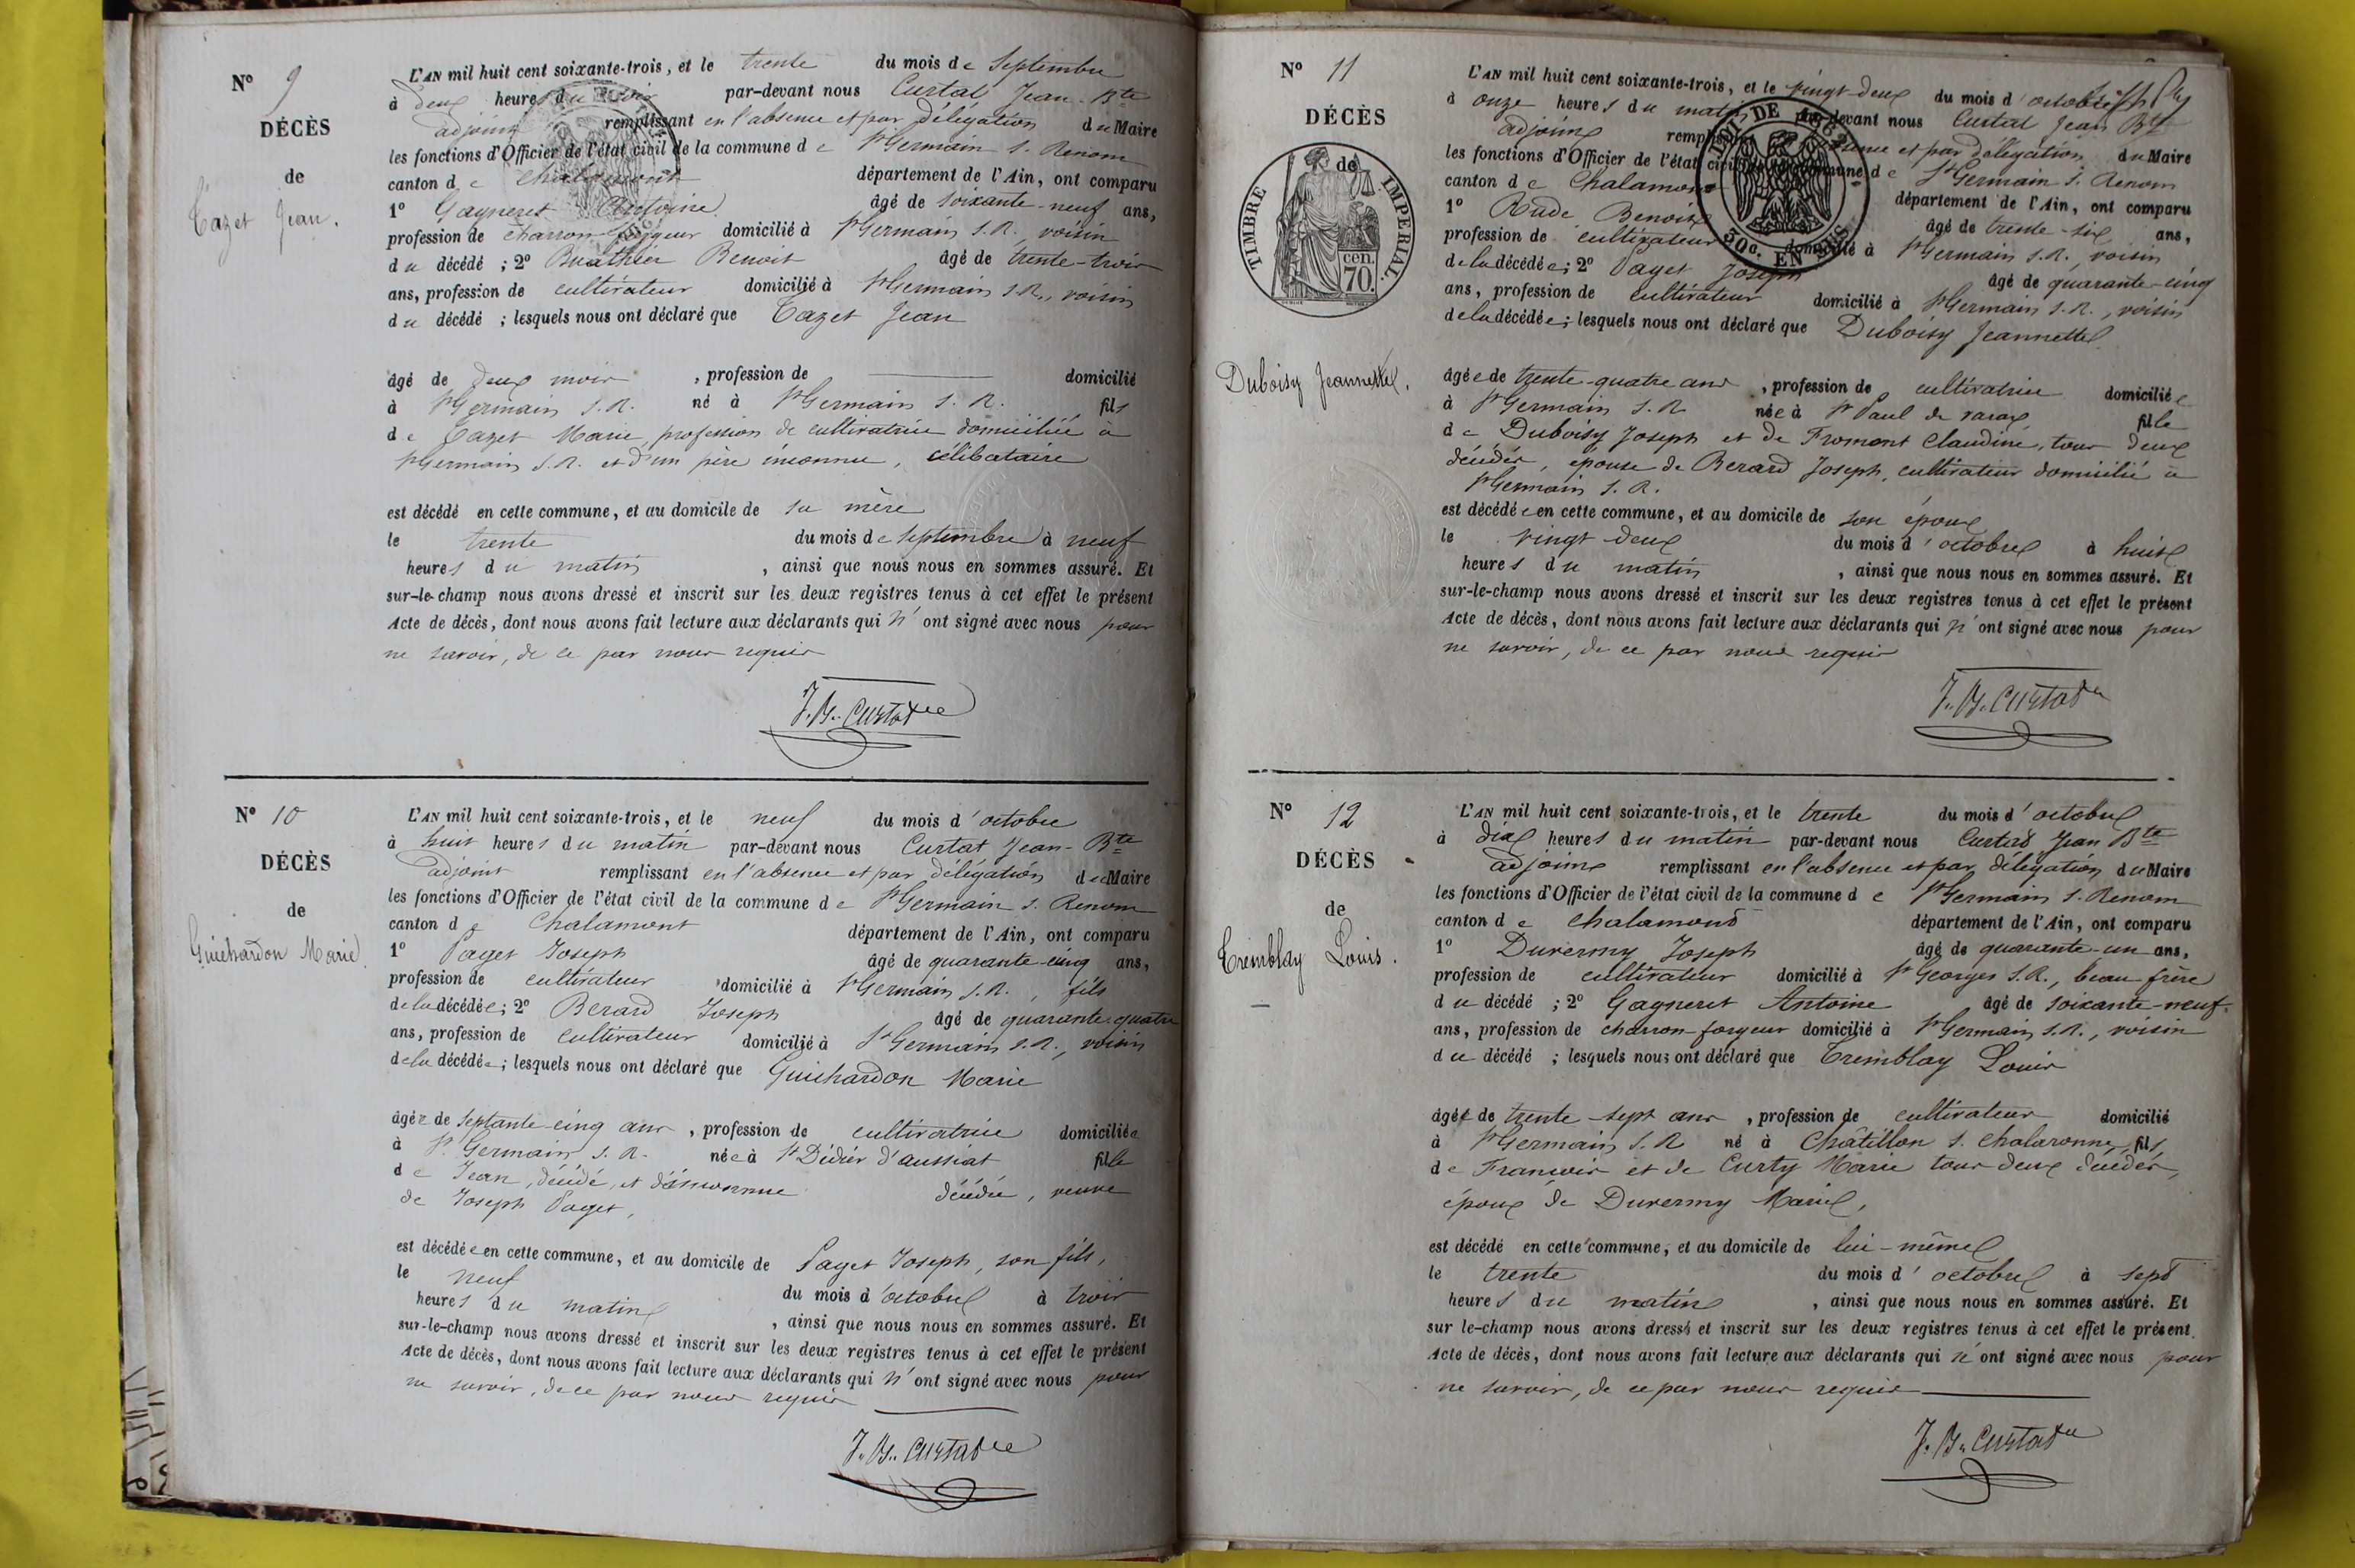 N° 9
DÉCÈS
de
Cazet Jean.
L'AN mil huit cent soixante-trois, et le trente du mois de Septembre
à deux heures du soir par-devant nous Curtat Jean-Bte
adjoint remplissant en l'absence et par délégation du Maire
les fonctions d'Officier de l'état civil de la commune de St Germain s. Renom
canton de Chalamont département de l'Ain, ont comparu
1° Gagneret Antoine âgé de soixante-neuf ans,
profession de charron-forgeur domicilié à St Germain S.R., voisin
du décédé ; 2° Buathier Benoit âgé de trente-trois
ans, profession de cultivateur domicilié à St Germain S.R., voisin
du décédé ; lesquels nous ont déclaré que Cazet Jean
âgé de deux mois , profession de domicilié
à St Germain S.R. né à St Germain S.R. fils
de Cazet Marie, profession de cultivatrice domiciliée à
St Germain S.R. et d'un père inconnu, célibataire
est décédé en cette commune, et au domicile de sa mère
le trente du mois de septembre à neuf
heures du matin , ainsi que nous nous en sommes assuré. Et
sur-le-champ nous avons dressé et inscrit sur les deux registres tenus à cet effet le présent
Acte de décès, dont nous avons fait lecture aux déclarants qui n'ont signé avec nous pour
ne savoir, de ce par nous requis
J.B. Curtat
N° 10
DÉCÈS
de
Guichardon Marie.
L'AN mil huit cent soixante-trois, et le neuf du mois d'octobre
à huit heures du matin par-devant nous Curtat Jean-Bte
adjoint remplissant en l'absence et par délégation du Maire
les fonctions d'Officier de l'état civil de la commune de St Germain s. Renom
canton de Chalamont département de l'Ain, ont comparu
1° Paget Joseph âgé de quarante-cinq ans,
profession de cultivateur domicilié à St Germain S.R., fils
de la décédée ; 2° Berard Joseph âgé de quarante-quatre
ans, profession de cultivateur domicilié à St Germain S.R., voisin
de la décédée ; lesquels nous ont déclaré que Guichardon Marie
âgée de septante-cinq ans , profession de cultivatrice domiciliée
à St Germain S.R. née à St Didier d'Aussiat fille
de Jean, décédé, et d'inconnue décédée, veuve
de Joseph Paget,
est décédée en cette commune, et au domicile de Paget Joseph, son fils,
le neuf du mois d'octobre à trois
heures du matin , ainsi que nous nous en sommes assuré. Et
sur-le-champ nous avons dressé et inscrit sur les deux registres tenus à cet effet le présent
Acte de décès, dont nous avons fait lecture aux déclarants qui n'ont signé avec nous pour
ne savoir, de ce par nous requis
J.B. Curtat
N° 11
DÉCÈS
de
TIMBRE IMPÉRIAL.
70 cen.
Duboisy Jeannette.
L'AN mil huit cent soixante-trois, et le vingt-deux du mois d'octobre
à onze heures du matin par-devant nous Curtat Jean Bte
adjoint remplissant en l'absence et par délégation du Maire
les fonctions d'Officier de l'état civil de la commune de St Germain s. Renom
canton de Chalamont département de l'Ain, ont comparu
LOI DE 1862
30c. EN SUS
1° Rude Benoit âgé de trente-six ans,
profession de cultivateur domicilié à St Germain S.R., voisin
de la décédée ; 2° Paget Joseph âgé de quarante-cinq
ans, profession de cultivateur domicilié à St Germain S.R., voisin
de la décédée ; lesquels nous ont déclaré que Duboisy Jeannette
âgée de trente-quatre ans , profession de cultivatrice domiciliée
à St Germain S.R née à St Paul de varax fille
de Duboisy Joseph et de Fromont Claudine, tous deux
décédés, épouse de Berard Joseph, cultivateur domicilié à
St Germain S.R.
est décédée en cette commune, et au domicile de son époux
le vingt-deux du mois d'octobre à huit
heures du matin , ainsi que nous nous en sommes assuré. Et
sur-le-champ nous avons dressé et inscrit sur les deux registres tenus à cet effet le présent
Acte de décès, dont nous avons fait lecture aux déclarants qui n'ont signé avec nous pour
ne savoir, de ce par nous requis
J.B. Curtat
N° 12
DÉCÈS
de
Tremblay Louis.
L'AN mil huit cent soixante-trois, et le trente du mois d'octobre
à dix heures du matin par-devant nous Curtat Jean Bte
adjoint remplissant en l'absence et par délégation du Maire
les fonctions d'Officier de l'état civil de la commune de St Germain s. Renom
canton de Chalamont département de l'Ain, ont comparu
1° Duvermy Joseph âgé de quarante-un ans,
profession de cultivateur domicilié à St Georges S.R., beau frère
du décédé ; 2° Gagneret Antoine âgé de soixante-neuf
ans, profession de charron-forgeur domicilié à St Germain S.R., voisin
du décédé ; lesquels nous ont déclaré que Tremblay Louis
âgé de trente-sept ans , profession de cultivateur domicilié
à St Germain S.R né à Châtillon s. Chalaronne, fils
de François et de Curty Marie tous deux décédés,
époux de Duvermy Marie,
est décédé en cette commune, et au domicile de lui-même
le trente du mois d'octobre à sept
heures du matin , ainsi que nous nous en sommes assuré. Et
sur le-champ nous avons dressé et inscrit sur les deux registres tenus à cet effet le présent
Acte de décès, dont nous avons fait lecture aux déclarants qui n'ont signé avec nous pour
ne savoir, de ce par nous requis
J.B. Curtat